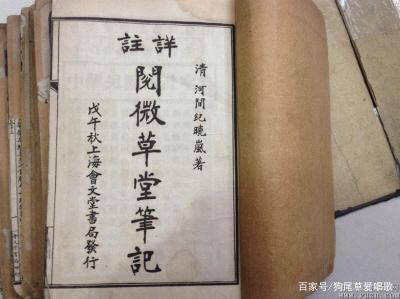 詳註
閱微草堂筆記
清 河間紀曉嵐著
戊午秋上海會文堂書局發行
百家号/狗尾草爱唱歌